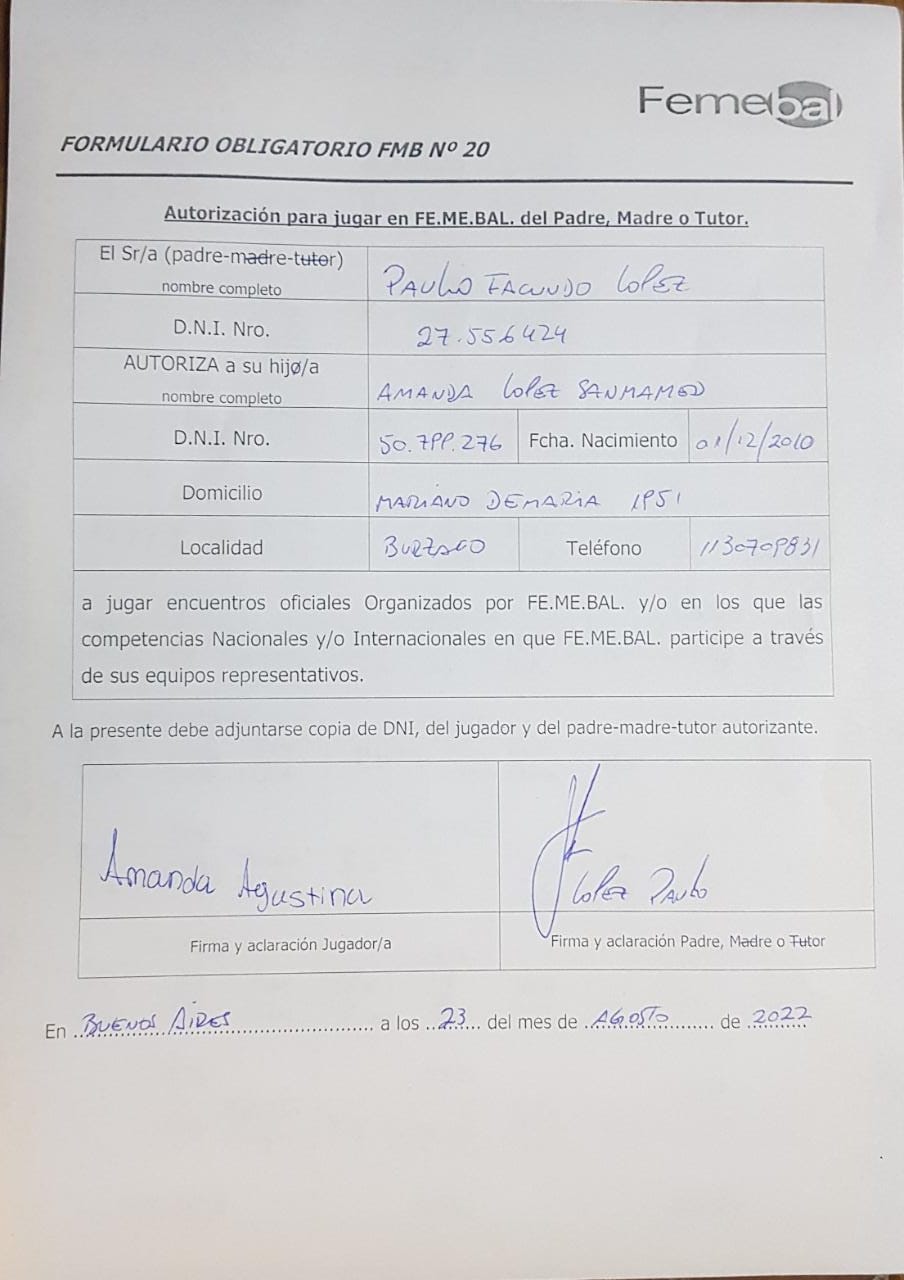 Femebal
FORMULARIO OBLIGATORIO FMB Nº 20
Autorización para jugar en FE.ME.BAL. del Padre, Madre o Tutor.
El Sr/a (padre-madre-tutor)
nombre completo
PAULO FACUNDO LOPEZ
D.N.I. Nro.
27.556424
AUTORIZA a su hijo/a
nombre completo
AMANDA LOPEZ SANMAMED
D.N.I. Nro.
50.799.276
Fcha. Nacimiento
01/12/2010
Domicilio
MARIANO DEMARIA 1951
Localidad
BURZACO
Teléfono
1130709831
a jugar encuentros oficiales Organizados por FE.ME.BAL. y/o en los que las
competencias Nacionales y/o Internacionales en que FE.ME.BAL. participe a través
de sus equipos representativos.
A la presente debe adjuntarse copia de DNI, del jugador y del padre-madre-tutor autorizante.
Amanda Agustina
Lopez Paulo
Firma y aclaración Jugador/a
Firma y aclaración Padre, Madre o Tutor
En BUENOS AIRES a los 23 del mes de AGOSTO de 2022